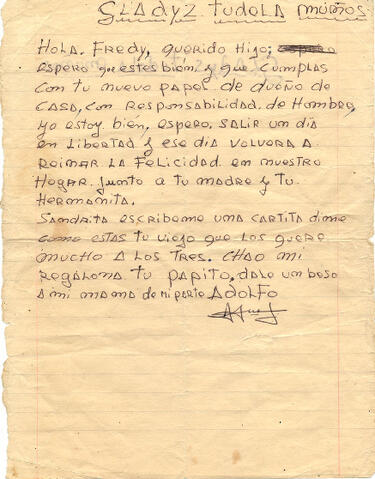 GLADYZ TUDELA MUÑOS
HOLA. FREDY, querido Hijo;
espero que estes bién y que cumplas
con tu nuevo papel de dueño de
CASA, con Responsabilidad, de Hombre,
yo estoy bién, espero, SALIR un día
en Libertad y ese día VOLVERA A
REINAR LA FELICIDAD en nuestro
HOGAR, junto a tu madre y tu
HERMANITA.
SANDRITA escribeme una cartita dime
como estas tu viejo que los quere
mucho A LOS TRES. CHAO mi
REGALONA tu PAPITO, dale un beso
A mi mama de mi parte ADOLFO